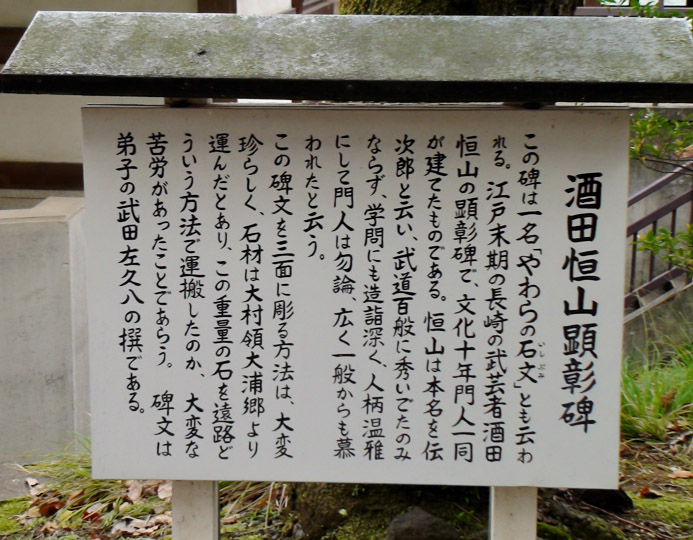 酒田恒山顕彰碑
この碑は一名「やわらの石文」とも云わ
いしぶみ
れる。江戸末期の長崎の武芸者酒田
恒山の顕彰碑で、文化十年門人一同
が建てたものである。恒山は本名を伝
次郎と云い、武道百般に秀いでたのみ
ならず、学問にも造詣深く、人柄温雅
にして門人は勿論、広く一般からも慕
われたと云う。
この碑文を三面に彫る方法は、大変
珍らしく、石材は大村領大浦郷より
運んだとあり、この重量の石を遠路ど
ういう方法で運搬したのか、大変な
苦労があったことであらう。 碑文は
弟子の武田左久八の撰である。